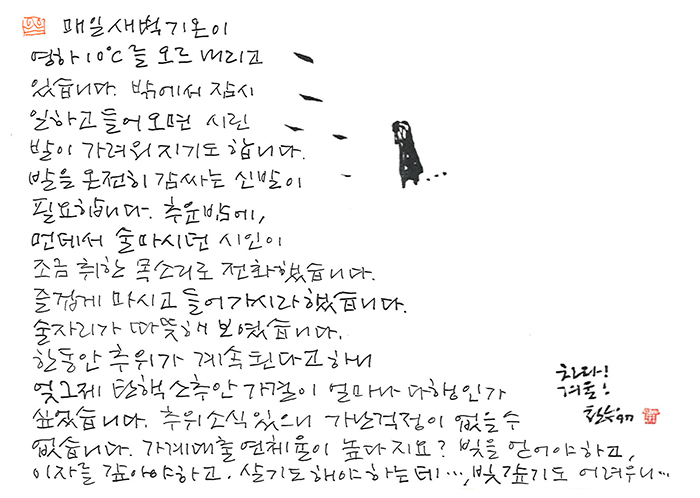 매일 새벽 기온이
영하 10°C를 오르내리고
있습니다. 밖에서 잠시
일하고 들어오면 시린
발이 가려워지기도 합니다.
발을 온전히 감싸는 신발이
필요합니다. 추운 밤에,
먼데서 술마시던 시인이
조금 취한 목소리로 전화했습니다.
즐겁게 마시고 들어가시라 했습니다.
술자리가 따뜻해 보였습니다.
한동안 추위가 계속된다고하니
엊그제 탄핵소추안 가결이 얼마나 다행인가
싶었습니다. 추위소식 있으니 가난걱정이 없을 수
없습니다. 가계대출연체율이 높다지요? 빚을 얻어야하고,
이자를 갚아야하고. 살기도 해야 하는데…, 빚갚기도 어려우니…
차라!
겨울!